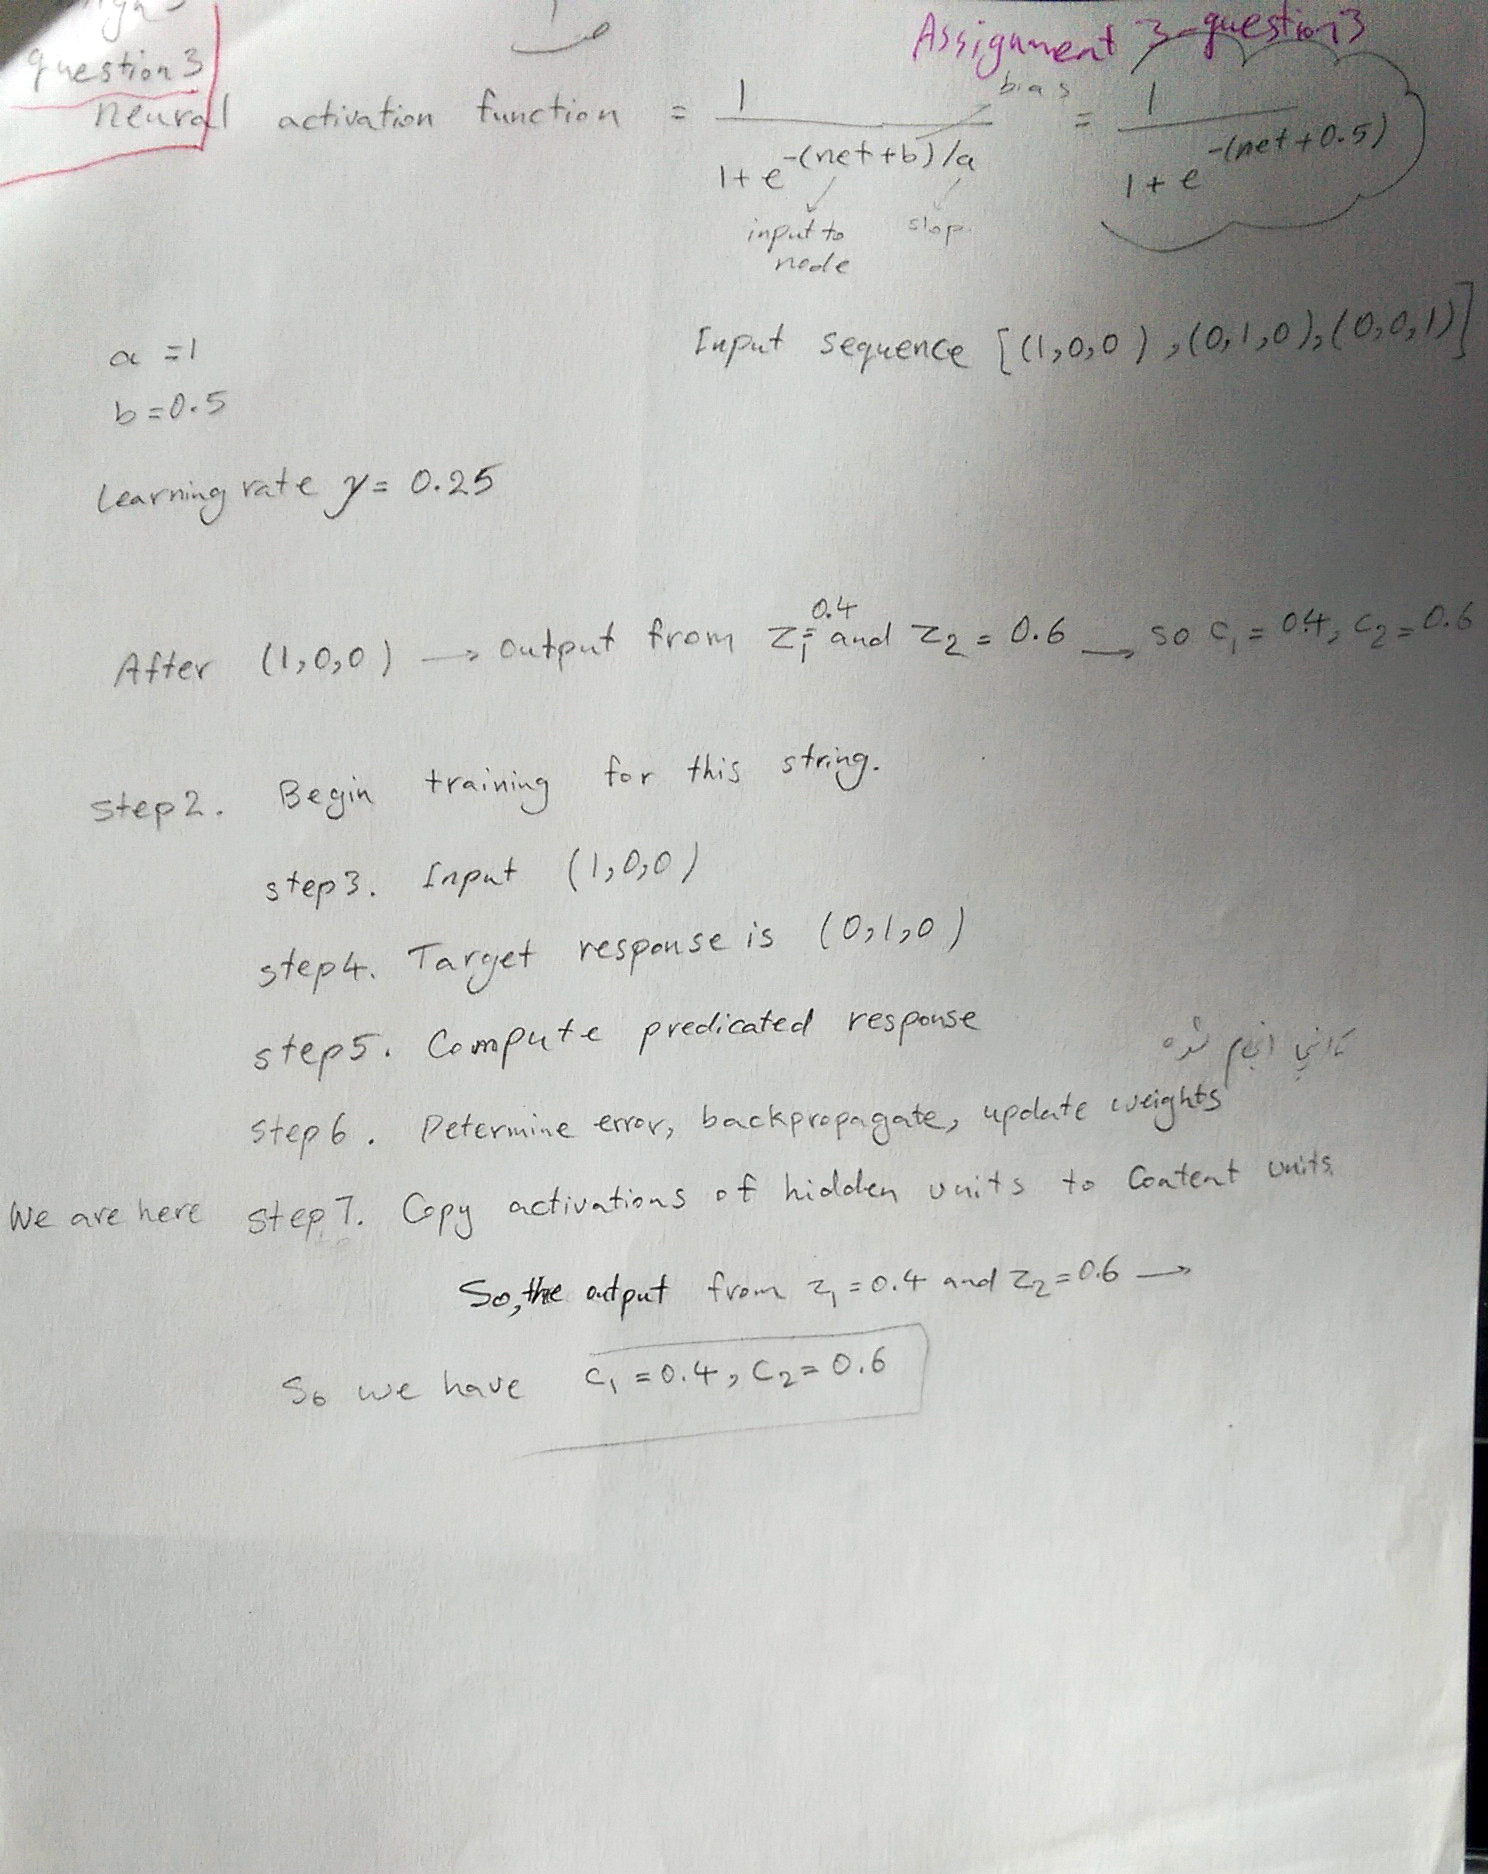 Assignment 3-question3
question3
neural activation function = 1 / 1+e^-(net+b)/a = 1 / 1+e^-(net+0.5)
bias
input to node
slop
a =1
Input sequence [(1,0,0),(0,1,0),(0,0,1)]
b=0.5
Learning rate γ= 0.25
After (1,0,0) → output from z₁=0.4 and z₂ = 0.6 → so c₁ = 0.4, c₂=0.6
step2. Begin training for this string.
step3. Input (1,0,0)
step4. Target response is (0,1,0)
step5. Compute predicated response
step6. Determine error, backpropagate, update weights
We are here step7. Copy activations of hidden units to Content units.
So, the output from z₁=0.4 and z₂=0.6 →
So we have c₁=0.4, c₂=0.6